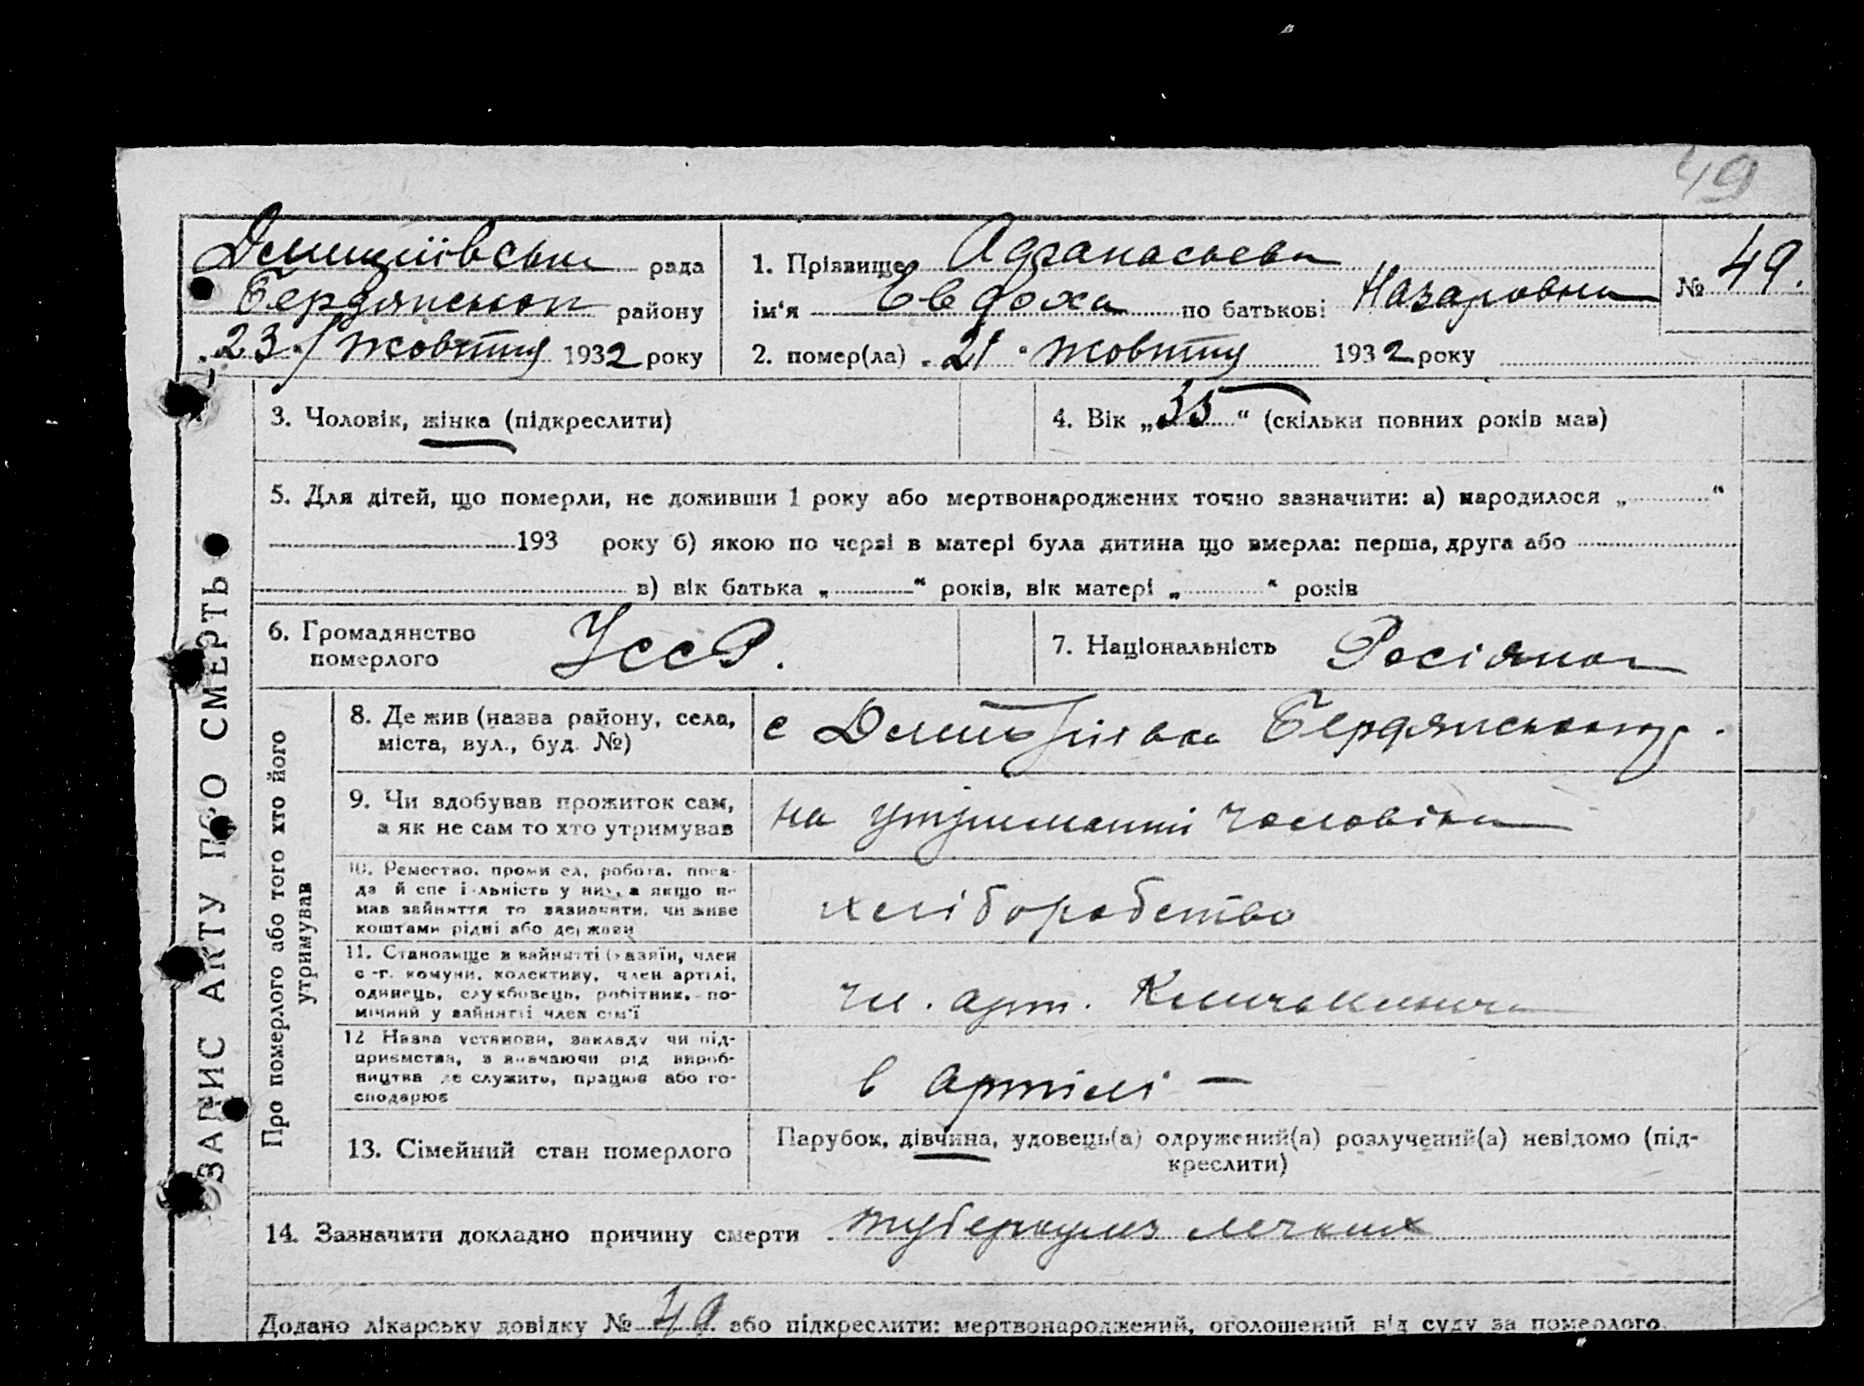 49
рада
Бердянської району
23 / жовтня 1932 року
1. Прізвище Афанасьева
ім'я Евдоха по батькові Назаровна
№ 49.
2. помер(ла) „ 21 " жовтня 1932 року
3. Чоловік, жінка (підкреслити)
4. Вік „ 35 " (скільки повних років мав)
5. Для дітей, що померли, не доживши 1 року або мертвонароджених точно зазначити: а) народилося „ "
193 року б) якою по черзі в матері була дитина що вмерла: перша, друга або
в) вік батька „ " років, вік матері „ " років
6. Громадянство
померлого
УССР.
7. Національність Росіянка
ЗАПИС АКТУ ПРО СМЕРТЬ
Про померлого або того хто його
утримував
8. Де жив (назва району, села,
міста, вул., буд. №)
с Бердянського р.
9. Чи здобував прожиток сам,
а як не сам то хто утримував
на утриманні чоловіка
10. Ремество, промисел, робота, поса-
да й спеціяльність у них, а якщо не
мав зайняття то зазначити, чи живе
коштами рідні або держави
хліборобство
11. Становище в зайнятті (хазяїн, член
с.-г. комуни, колективу, член артілі,
одинець, службовець, робітник, по-
мічний у зайнятті член сім'ї
чл. арт.
12 Назва установи, закладу чи під-
приємства, зазначаючи рід вироб-
ництва де служить, працює або го-
сподарює
в артілі —
13. Сімейний стан померлого
Парубок, дівчина, удовець(а) одружений(а) розлучений(а) невідомо (під-
креслити)
14. Зазначити докладно причину смерти туберкульоз легких
Додано лікарську довідку № 49 або підкреслити: мертвонароджений, оголошений від суду за померлого.